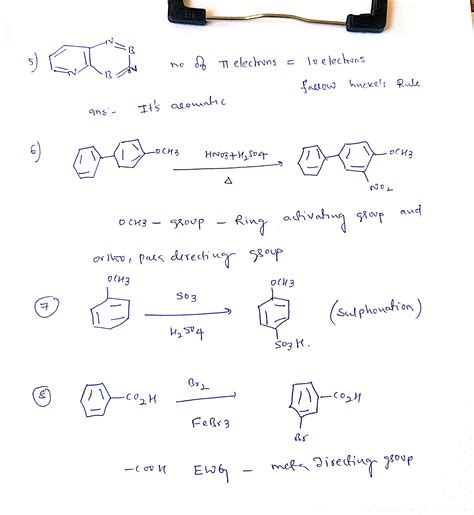 5) N B N B N no of π electrons = 10 electrons
follow huckels Rule
ans:- It's aromatic
6) OCH3 HNO3+H2SO4 Δ OCH3 NO2
OCH3 - group - Ring activating group and
ortho, para directing group
7 OCH3 SO3 H2SO4 OCH3 SO3H. (sulphonation)
8 CO2H Br2 FeBr3 CO2H Br
-COOH EWG - meta directing group